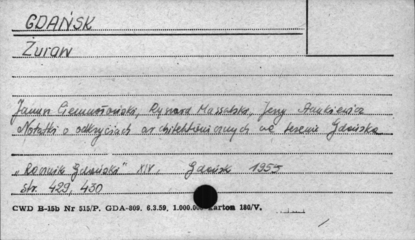 GDAŃSK
Żuraw
Janina Ryszard Massalski, Jerzy Stankiewicz
Notatki o odkryciach architektonicznych na terenie Gdańska
„Rocznik Gdański" XIV, Gdańsk 1955
str. 429, 430
CWD B-15b Nr 515/P. GDA-809. 6.3.59. 1.000.000 karton 180/V.